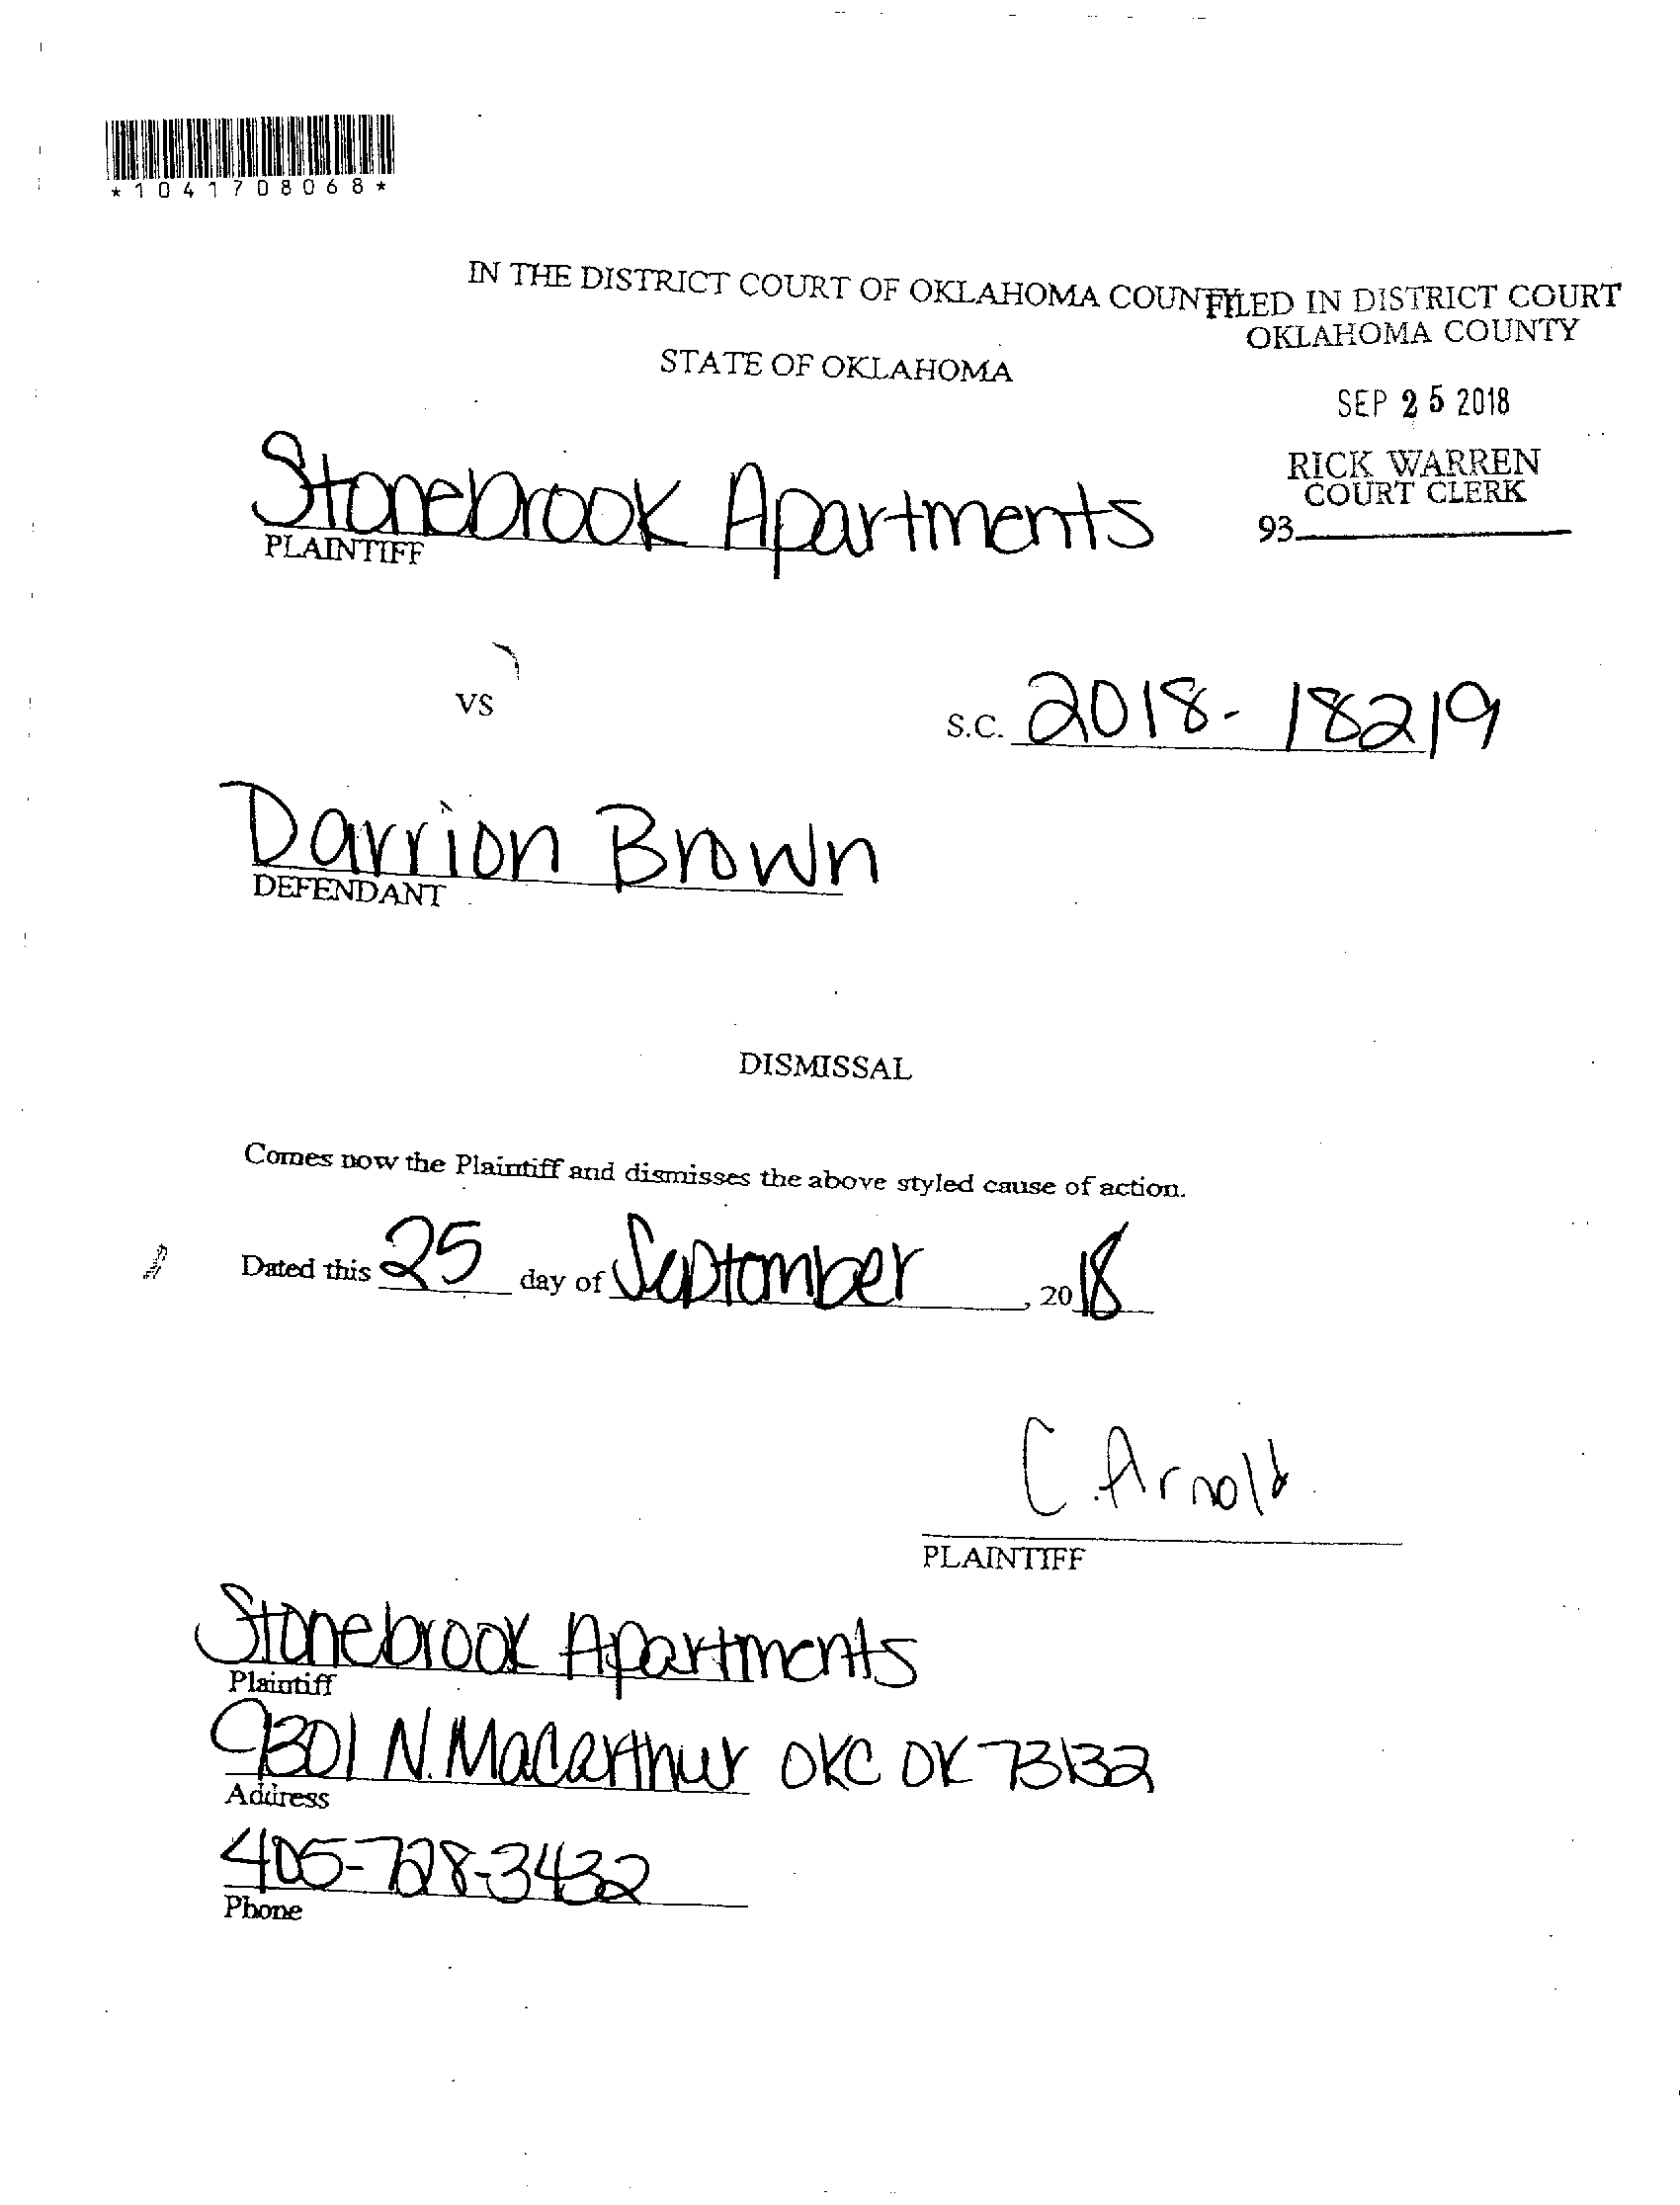 *1041708068*
IN THE DISTRICT COURT OF OKLAHOMA COUNTY
FILED IN DISTRICT COURT
OKLAHOMA COUNTY
STATE OF OKLAHOMA
SEP 25 2018
RICK WARREN
COURT CLERK
93
Stonebrook Apartments
PLAINTIFF
VS
S.C. 2018-18219
Darrion Brown
DEFENDANT
DISMISSAL
Comes now the Plaintiff and dismisses the above styled cause of action.
Dated this 25 day of September, 2018
C. Arnold
PLAINTIFF
Stonebrook Apartments
Plaintiff
9301 N. Macarthur OKC OK 73132
Address
405-728-3432
Phone